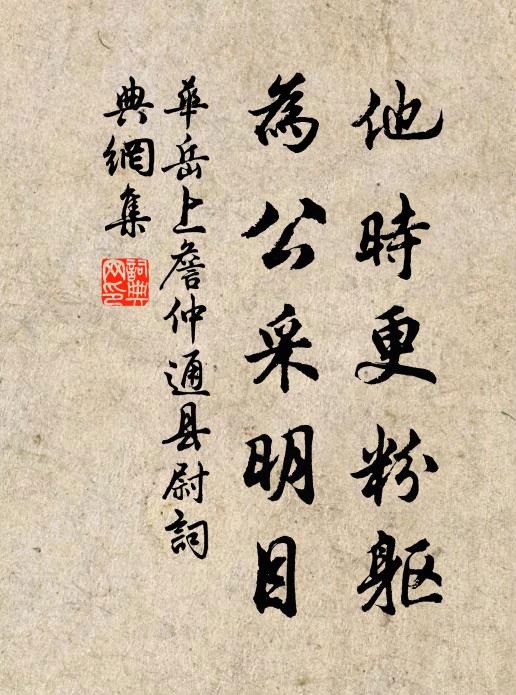 他時更粉軀
為公采明目
華岳上詹仲通县尉詞
典網集
詞典网印